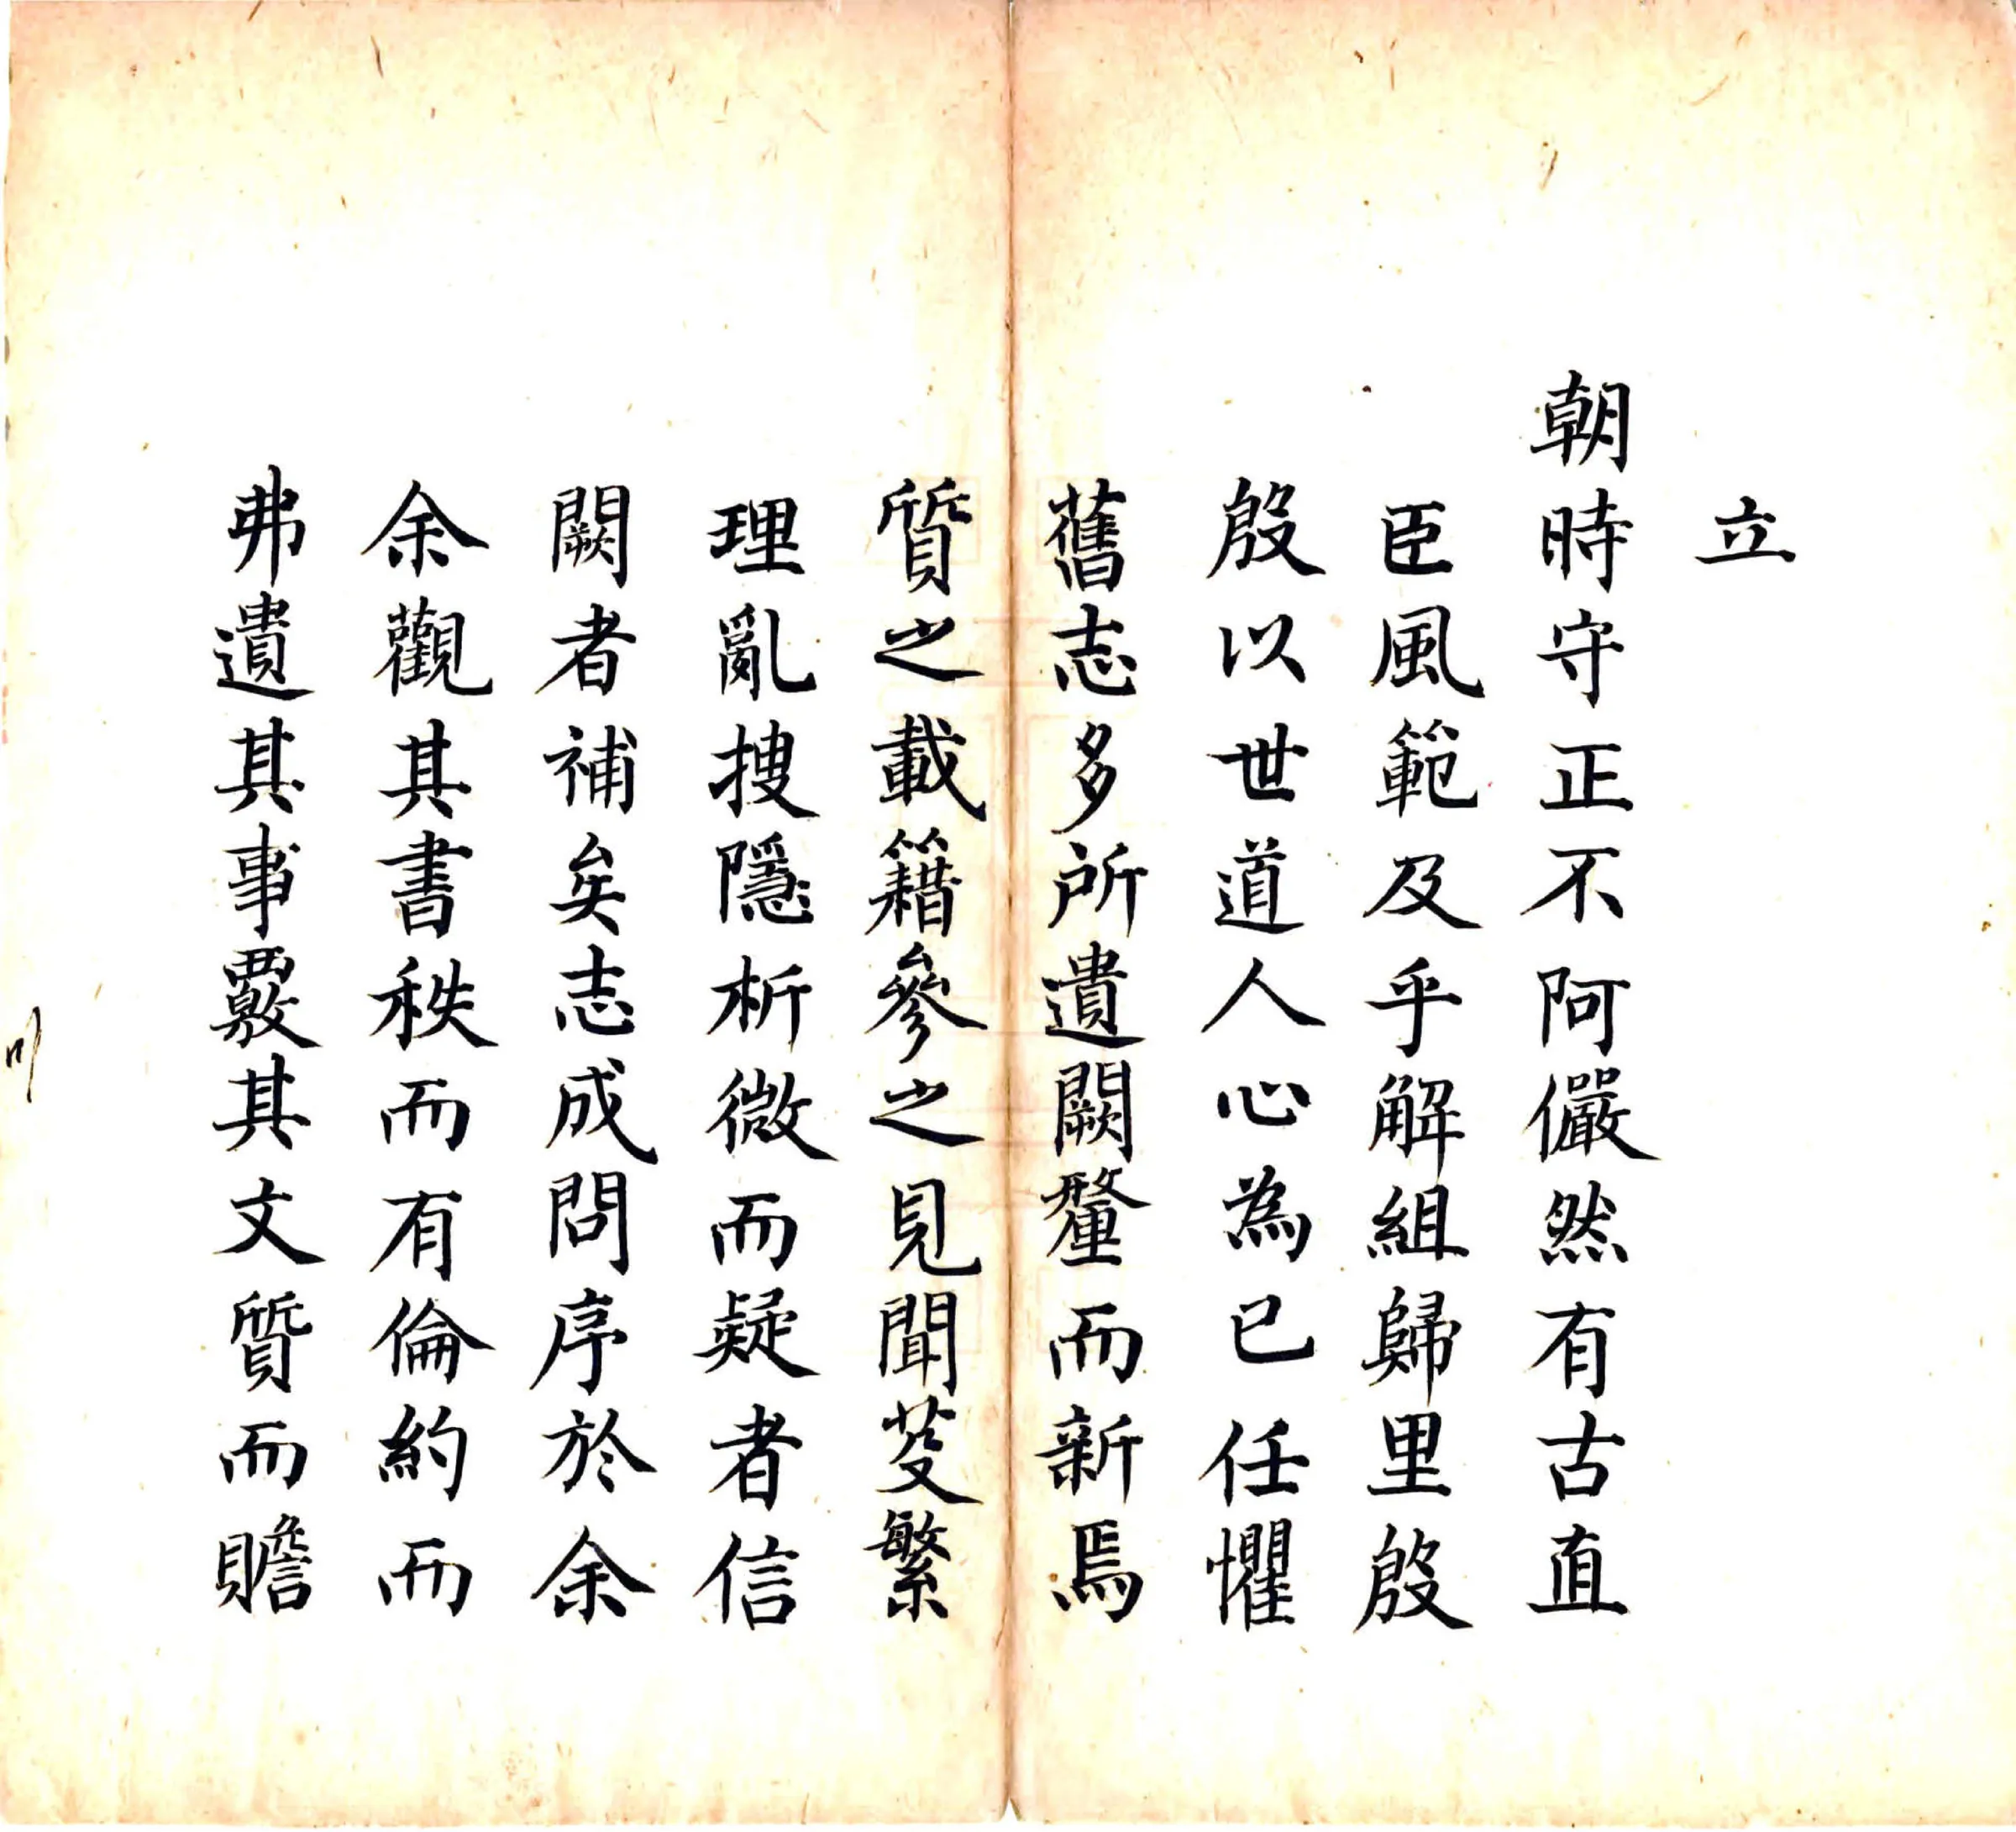 立
朝時守正不阿儼然有古直
臣風範及乎解組歸里殷
殷以世道人心為已任懼
舊志多所遺闕釐而新焉
質之載籍參之見聞芟繁
理亂搜隱析微而疑者信
闕者補矣志成問序於余
余觀其書秩而有倫約而
弗遺其事覈其文質而贍